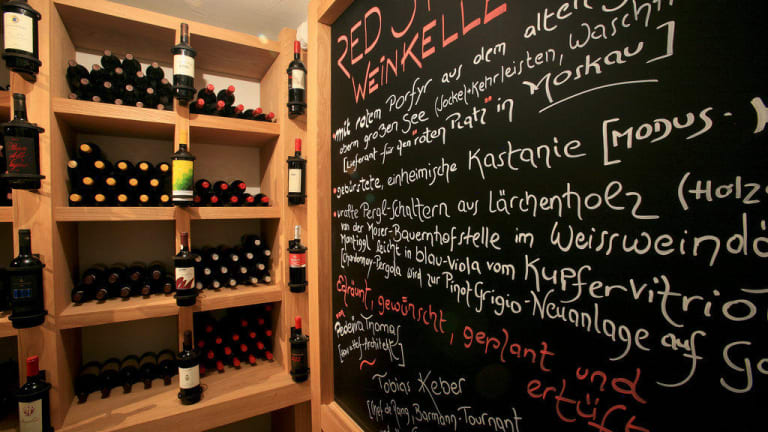 RED
WEINKELLE
• mit rotem Porfyr aus dem alten
obern großen See (Sockel-Kehrleisten, Wascht
[Lieferant für den "roten Platz" in Moskau]
• gebürstete, einheimische Kastanie [MODUS-
• uralte Pergl-Schaltern aus Lärchenholz (Holz
von der Moser-Bauernhofstelle im Weissweindö
Montiggl leicht in blau-viola vom Kupfervitrio
[Chardonnay-Pergola wird zur Pinot Grigio-Neuanlage auf
Erträumt, gewünscht, geplant und
ertüf
Federica Thomas
Architekt]
~
Tobias Keber
[Chef de rang, Barmann-Tournant